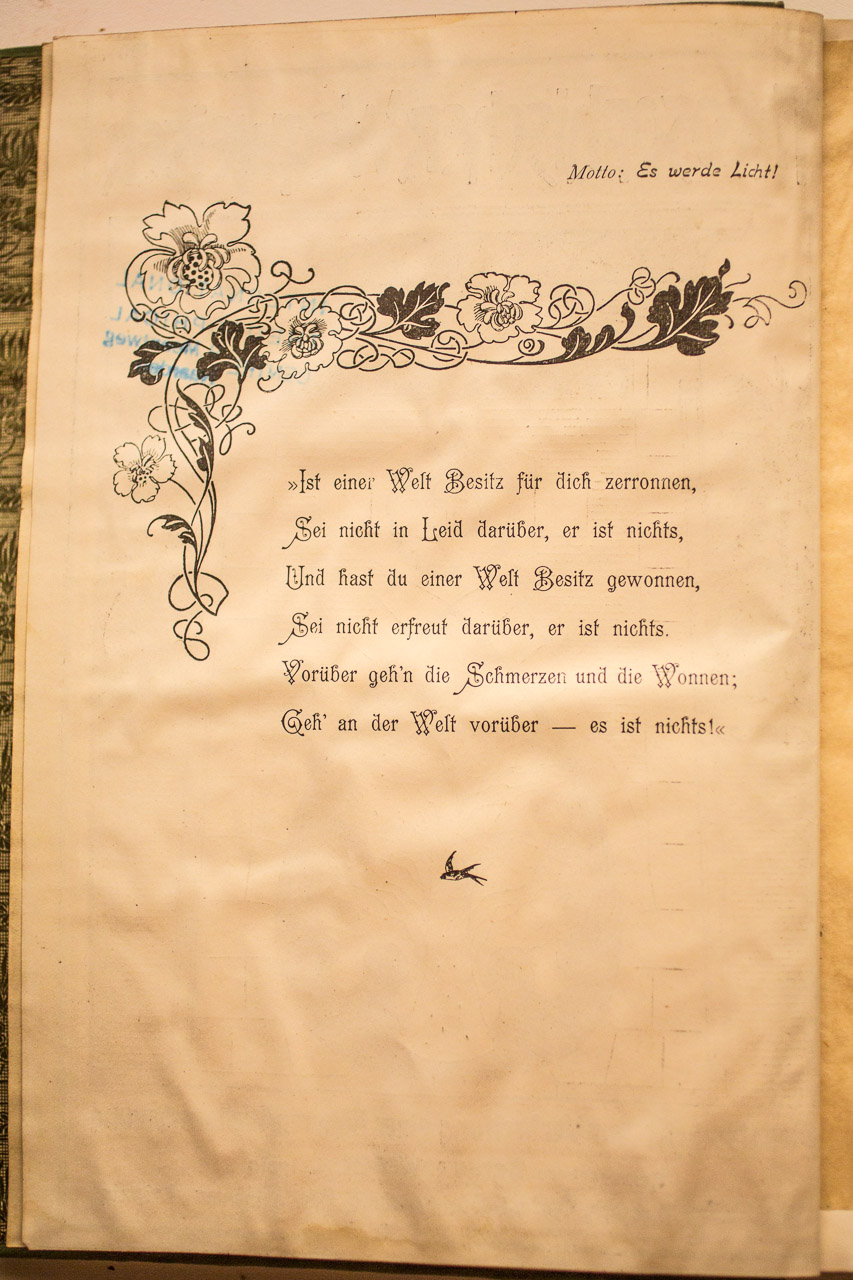 Motto: Es werde Licht!
»Ist einer Welt Besitz für dich zerronnen,
Sei nicht in Leid darüber, er ist nichts,
Und hast du einer Welt Besitz gewonnen,
Sei nicht erfreut darüber, er ist nichts.
Vorüber geh'n die Schmerzen und die Wonnen;
Geh' an der Welt vorüber — es ist nichts!«